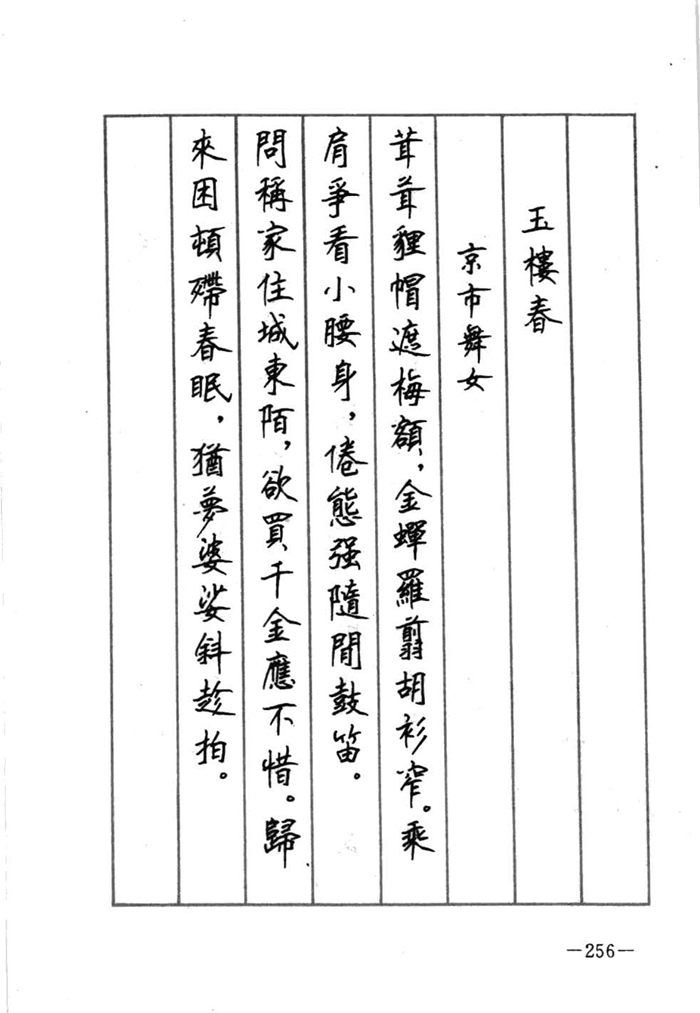 玉樓春
京市舞女
茸茸貍帽遮梅額，金蟬羅翦胡衫窄。乘
肩爭看小腰身，倦態强隨閒鼓笛。
問稱家住城東陌，欲買千金應不惜。歸
來困頓殢春眠，猶夢婆娑斜趁拍。
—256—